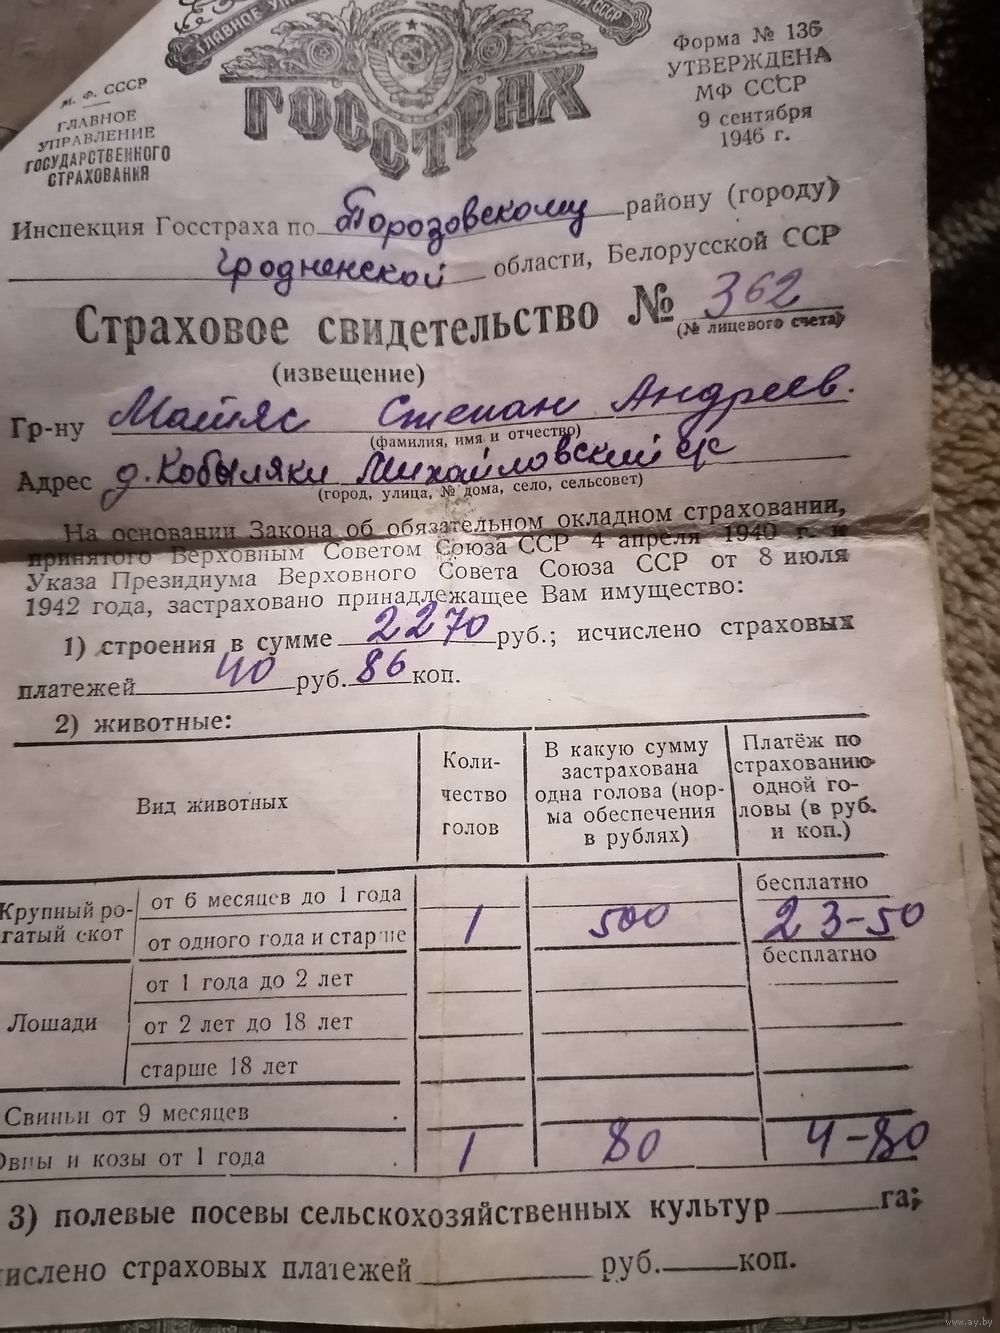 ГЛАВНОЕ СССР
ГОССТРАХ
М. Ф. СССР
ГЛАВНОЕ
УПРАВЛЕНИЕ
ГОСУДАРСТВЕННОГО
СТРАХОВАНИЯ
Форма № 136
УТВЕРЖДЕНА
МФ СССР
9 сентября
1946 г.
Инспекция Госстраха по Порозовскому району (городу)
Гродненской области, Белорусской ССР
Страховое свидетельство № 362
(№ лицевого счета)
(извещение)
Гр-ну Матяс Степан Андреев.
(фамилия, имя и отчество)
Адрес д. Кобыляки Михайловский с/с
(город, улица, № дома, село, сельсовет)
На основании Закона об обязательном окладном страховании,
принятого Верховным Советом Союза ССР 4 апреля 1940 г. и
Указа Президиума Верховного Совета Союза ССР от 8 июля
1942 года, застраховано принадлежащее Вам имущество:
1) строения в сумме 2270 руб.; исчислено страховых
платежей 40 руб. 86 коп.
2) животные:
Вид животных
Коли-
чество
голов
В какую сумму
застрахована
одна голова (нор-
ма обеспечения
в рублях)
Платёж по
страхованию
одной го-
ловы (в руб.
и коп.)
Крупный ро-
гатый скот
от 6 месяцев до 1 года бесплатно
от одного года и старше 1 500 23-50
Лошади
от 1 года до 2 лет бесплатно
от 2 лет до 18 лет
старше 18 лет
Свиньи от 9 месяцев .
Овцы и козы от 1 года . 1 80 4-80
3) полевые посевы сельскохозяйственных культур га;
числено страховых платежей руб. коп.
www.ay.by